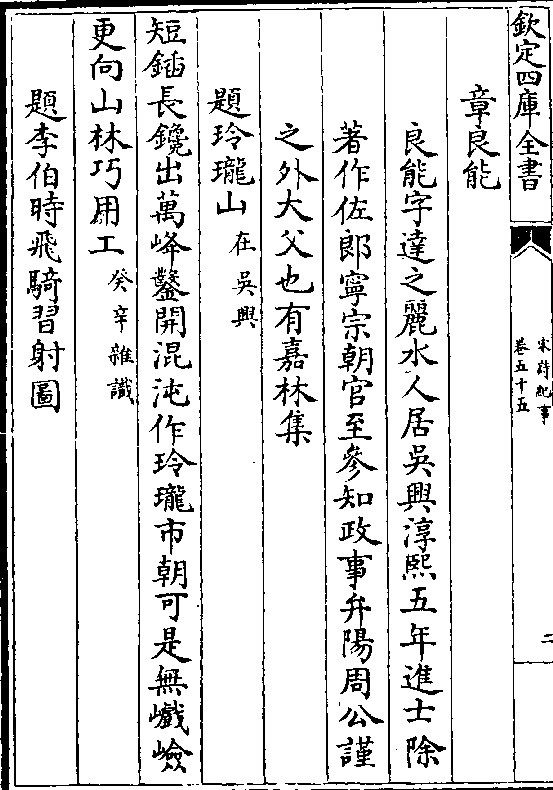 欽定四庫全書
宋詩紀事
卷五十五
二
章良能
良能字達之麗水人居吳興淳熙五年進士除
著作佐郎寧宗朝官至參知政事弁陽周公謹
之外大父也有嘉林集
題玲瓏山在吳興
短鍤長鑱出萬峰鑿開混沌作玲瓏市朝可是無巇嶮
更向山林巧用工癸辛雜識
題李伯時飛騎習射圖